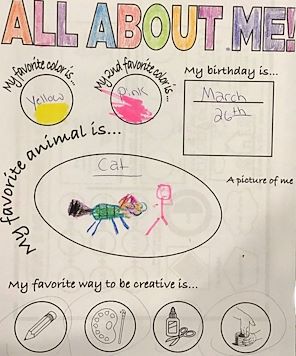 ALL ABOUT ME!
My favorite color is...
Yellow
My 2nd favorite color is...
Pink
My birthday is...
March
26th
My favorite animal is...
Cat
A picture of me
My favorite way to be creative is...